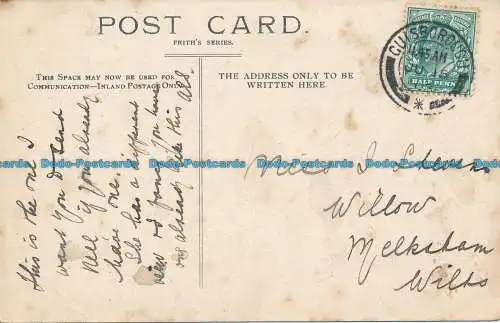 POST CARD.
FRITH'S SERIES.
THIS SPACE MAY NOW BE USED FOR
COMMUNICATION—INLAND POSTAGE ONLY.
THE ADDRESS ONLY TO BE
WRITTEN HERE.
GUISBOROUGH
HALF PENNY
This is the one I
want you to send
Nell if you already
have one.
She has a different
view
already like this
Miss J
Willow
Melksham
Wilts
Dodo-Postcards Dodo-Postcards Dodo-Postcards Dodo-Postcards